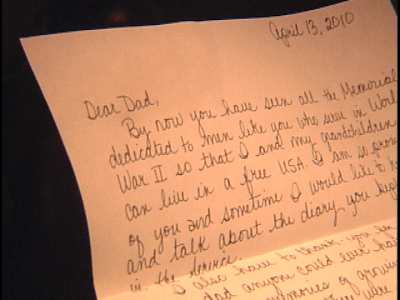 April 13, 2010
Dear Dad,
By now you have seen all the Memorial
dedicated to men like you who were in World
War II so that I and my grandchildren
can live in a free USA. I am so proud
of you and sometime I would like to
and talk about the diary you kept
in the service.
I also have to thank you
dad anyone could ever
memories of growing
were